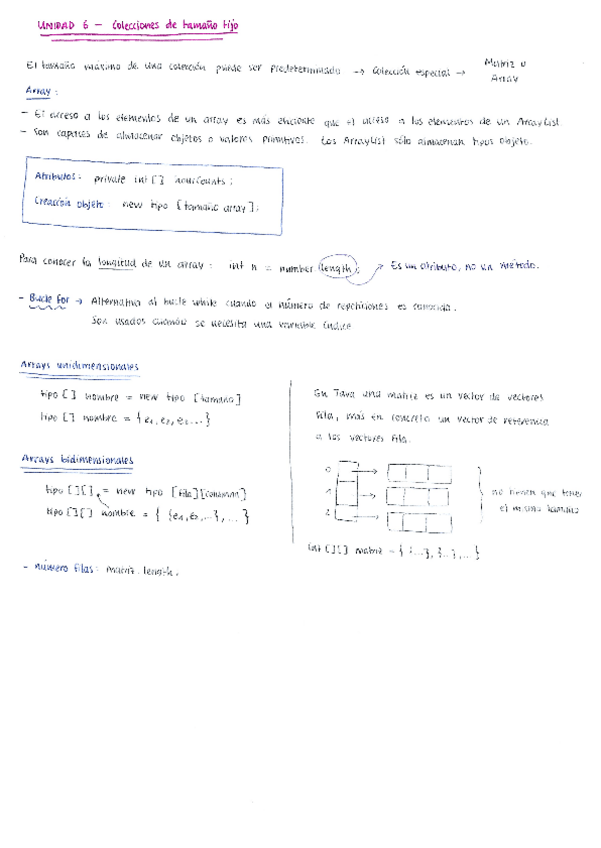 UNIDAD 6 - Colecciones de tamaño fijo
El tamaño máximo de una colección puede ser predeterminado → Colección especial → Matriz o Array
Array:
- El acceso a los elementos de un array es más eficiente que el acceso a los elementos de un ArrayList.
- Son capaces de almacenar objetos o valores primitivos. Los ArrayList sólo almacenan tipos objeto.
Atributos: private int[] hourCounts;
Creación objeto: new tipo [tamaño array];
Para conocer la longitud de un array: int n = number.length; → Es un atributo, no un método.
- Bucle for → Alternativa al bucle while cuando el número de repeticiones es conocida.
Son usados cuando se necesita una variable índice
Arrays unidimensionales
tipo [] nombre = new tipo [tamaño]
tipo [] nombre = {e1, e2, e3 ...}
Arrays bidimensionales
tipo [][] = new tipo [fila][columna]
tipo [][] nombre = { {e1, e2, ...}, ... }
- número filas: matriz.length.
En Java una matriz es un vector de vectores
fila, más en concreto un vector de referencia
a los vectores fila.
0
1
2
no tienen que tener
el mismo tamaño
int [][] matriz = { {...}, {...}, ... }